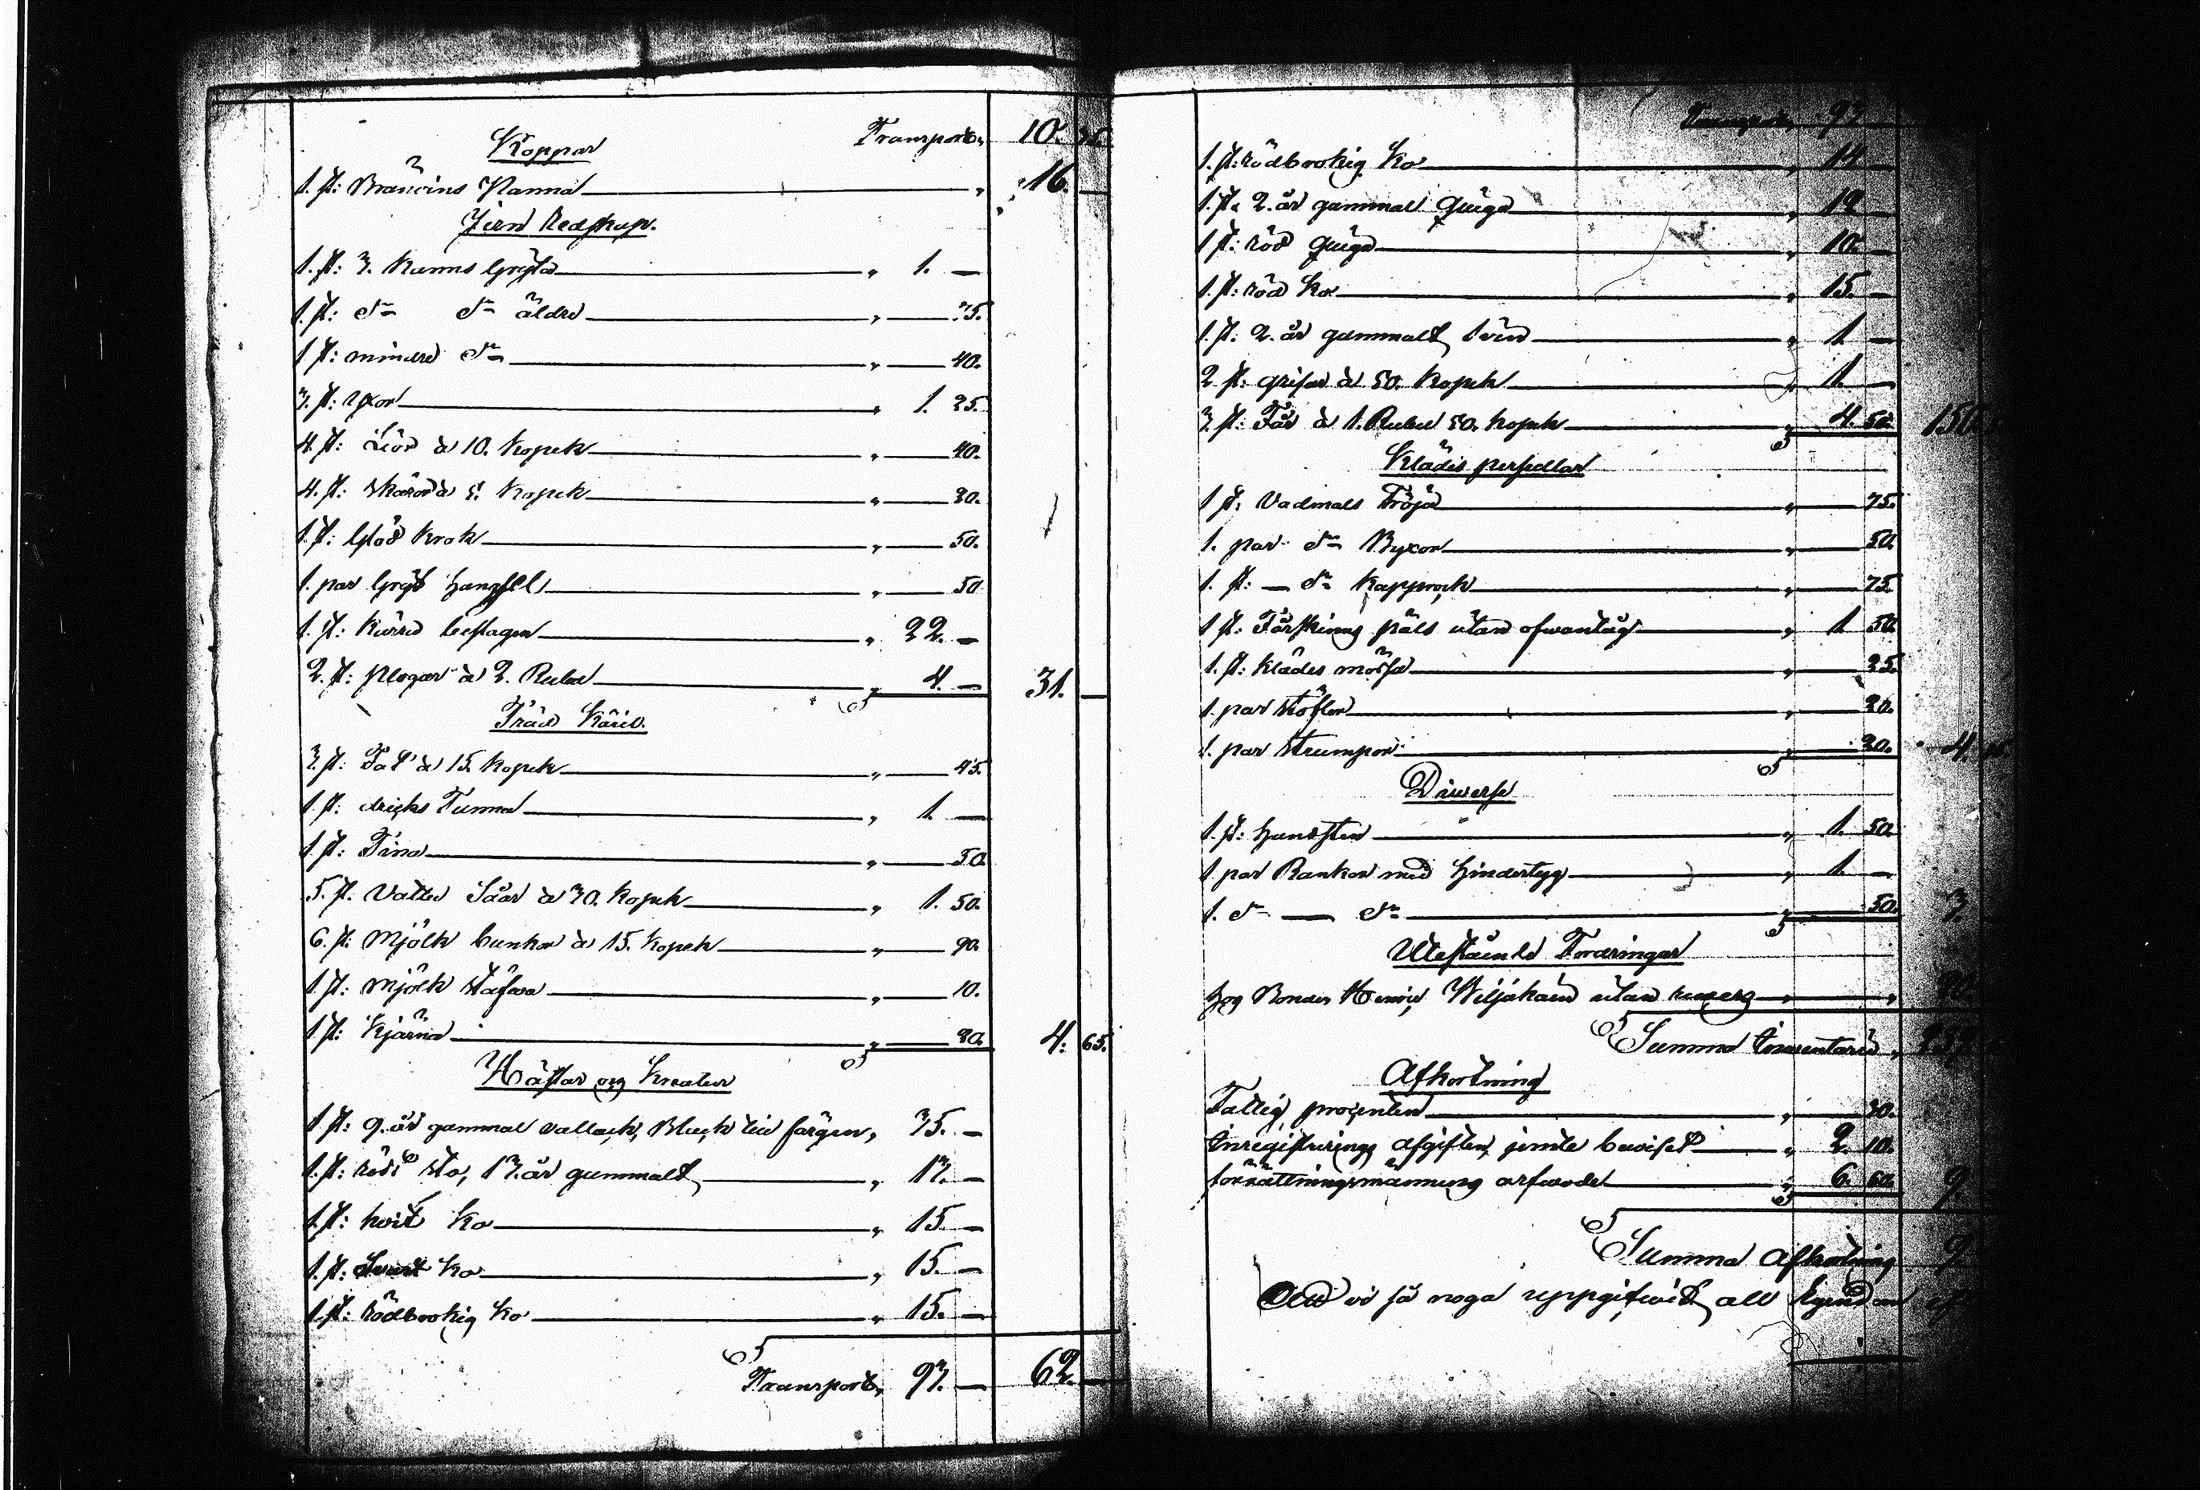 Transport, 10. 35.
Koppar
1. st: Bränvins Panna " 16. —
Jern Redskap.
1. st: 3. Kanns Gryta " 1. —
1. st: do do äldre " — 75.
1 st: mindre do " — 40.
3. st: Yxor " 1. 25.
4. st: Liar à 10. Kopek " — 40.
4. st: Skäror à 5. Kopek " — 20.
1. st: Glöd Krok " — 50.
1. par Gryt " — 50
1. st: Kärra beslagen " 22. —
2. st: plogar à 2. Rubel " 4. — 31. —
Träd Käril.
3. st: Fat à 15. Kopek " — 45.
1 st: dricks Tunna " 1. —
1 st: Tina " — 50
5. st. Vatten Såar à 30. Kopek " 1. 50.
6. st: Mjölk bunkar à 15. Kopek " — 90.
1 st: Mjölk Stäfva " — 10.
1 st: Kjärna " — 20. 4. 65.
Hästar och Kreatur
1 st: 9. år gammal vallack, Black till färgen, 35. —
1. st: röd Sto, 13. år gammalt " 13. —
1. st: hvit Ko " 15. —
1. st: Svart Ko " 15. —
1. st: rödbrokig Ko " 15. —
Transport, 93. — 62. —
Transport, 93
1. st: rödbrokig Ko " 14 —
1. st. 2. år gammal Quiga " 12 —
1 st: röd Quiga " 10. —
1. st: röd Ko " 15. —
1. st: 2. år gammalt Svin " 1. —
2 st: grisar à 50. Kopek " 1. —
3. st: Får à 1. Rubel 50. Kopek " 4. 50. 150
Klädes persedlar
1 st: Vadmals Tröja " — 75.
1. par do Byxor " — 50.
1. st: — do Kapprock " — 75.
1 st: Fårskinns päls utan ofwantyg " 1. 50.
1. st: Klädes mössa " — 25.
1. par Stöflor " — 20.
1. par Strumpor " — 20. 4.
Diverse
1. st: Handsten " 1. 50.
1 par Rankor med Hindertyg " 1. —
1. do — do " — 50. 3.
Utestående Fordringar
hog Bonden Henric Wiljakain utan revers " "
Summa Inventarii "
Afkortning
Fattig procenten " — 30.
Inregistrerings afgiften jemte beviset " 2. 10.
förrättningsmännens arfvode " 6. 60. 9.
Summa Afkortning 9
vi så noga uppgifvit all Egendom